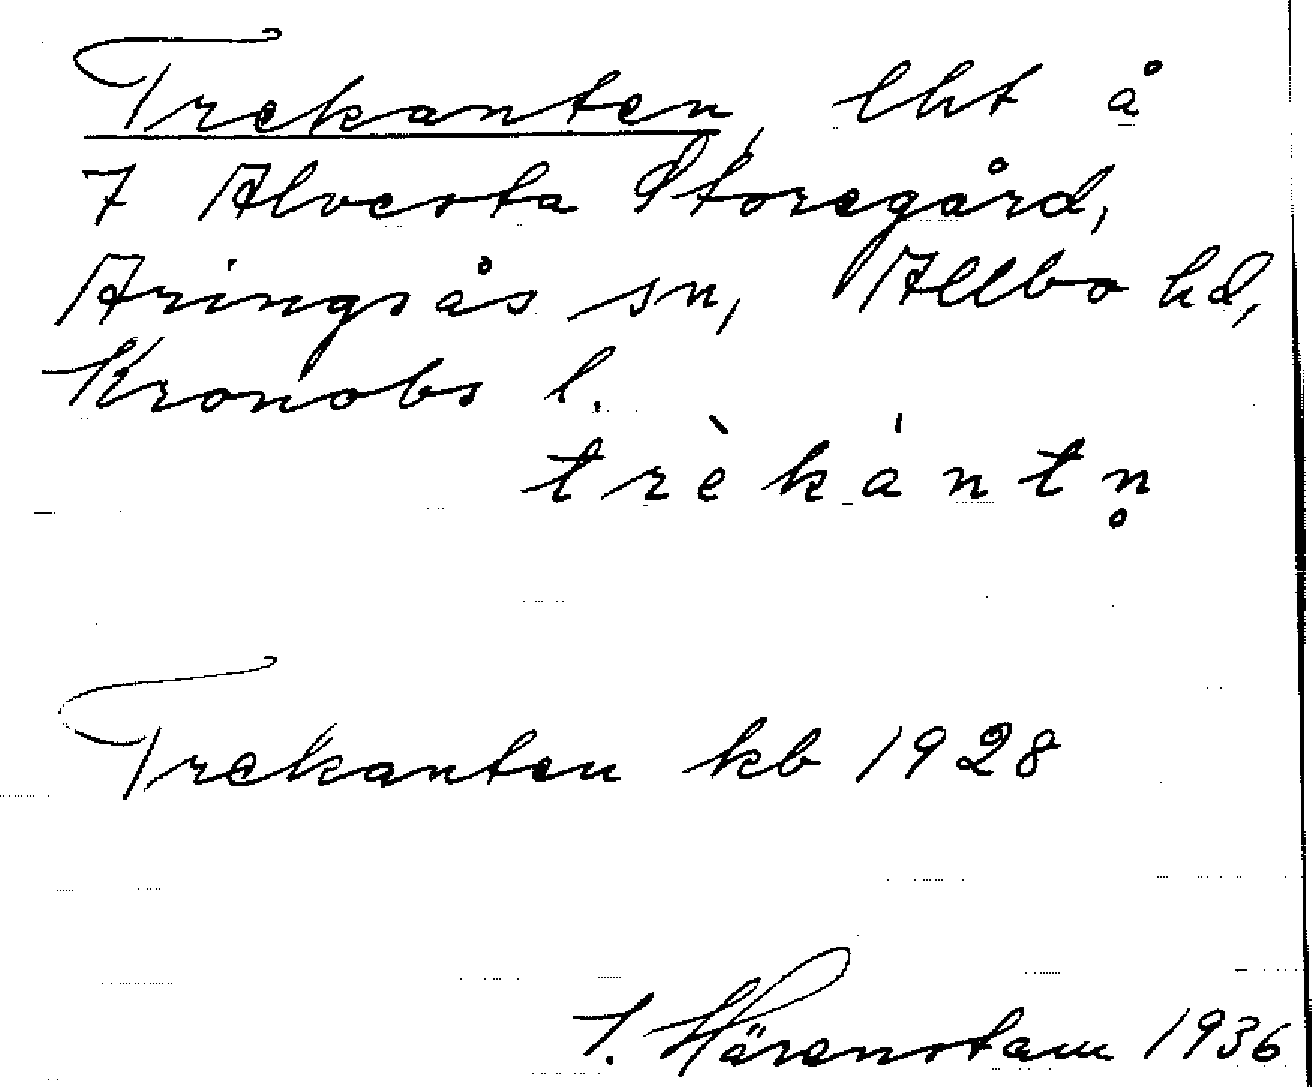 Trekanten, lht å
7 Alvesta Storegård,
Aringsås sn, Allbo hd,
Kronobs l.
trèkántn̥
Trekanten kb 1928
I. Härenstam 1936